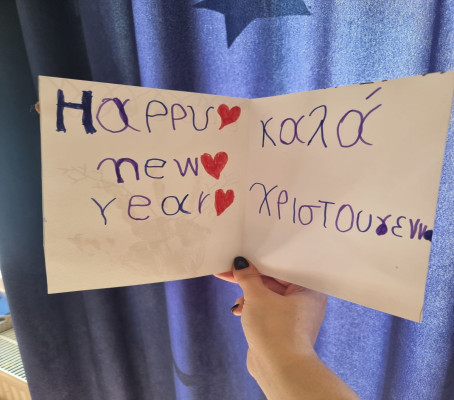 Happy
new
year
καλά
χριστουγεννα